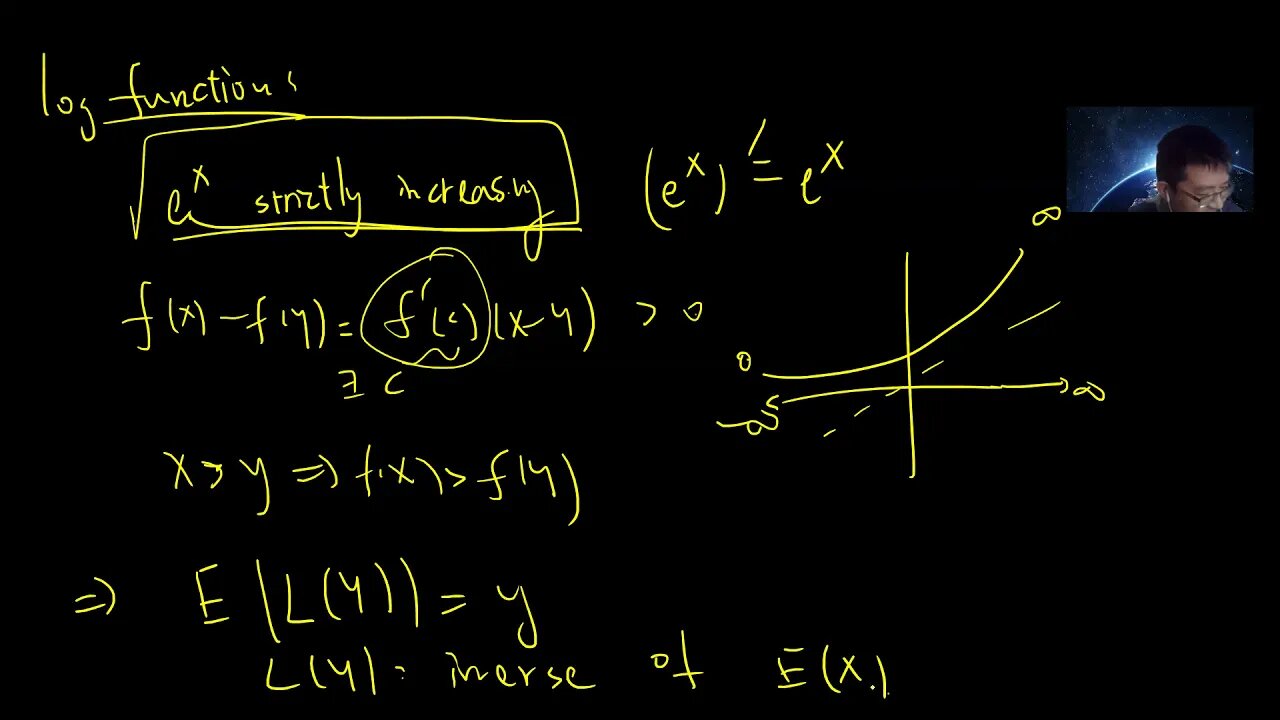 log functions
e^x strictly increasing
(e^x)' = e^x
f(x) - f(y) = f'(c)(x-y) > 0
∃ c
∞
0
-∞
∞
x > y ⇒ f(x) > f(y)
⇒ E(L(y)) = y
L(y) : inerse of E(x)